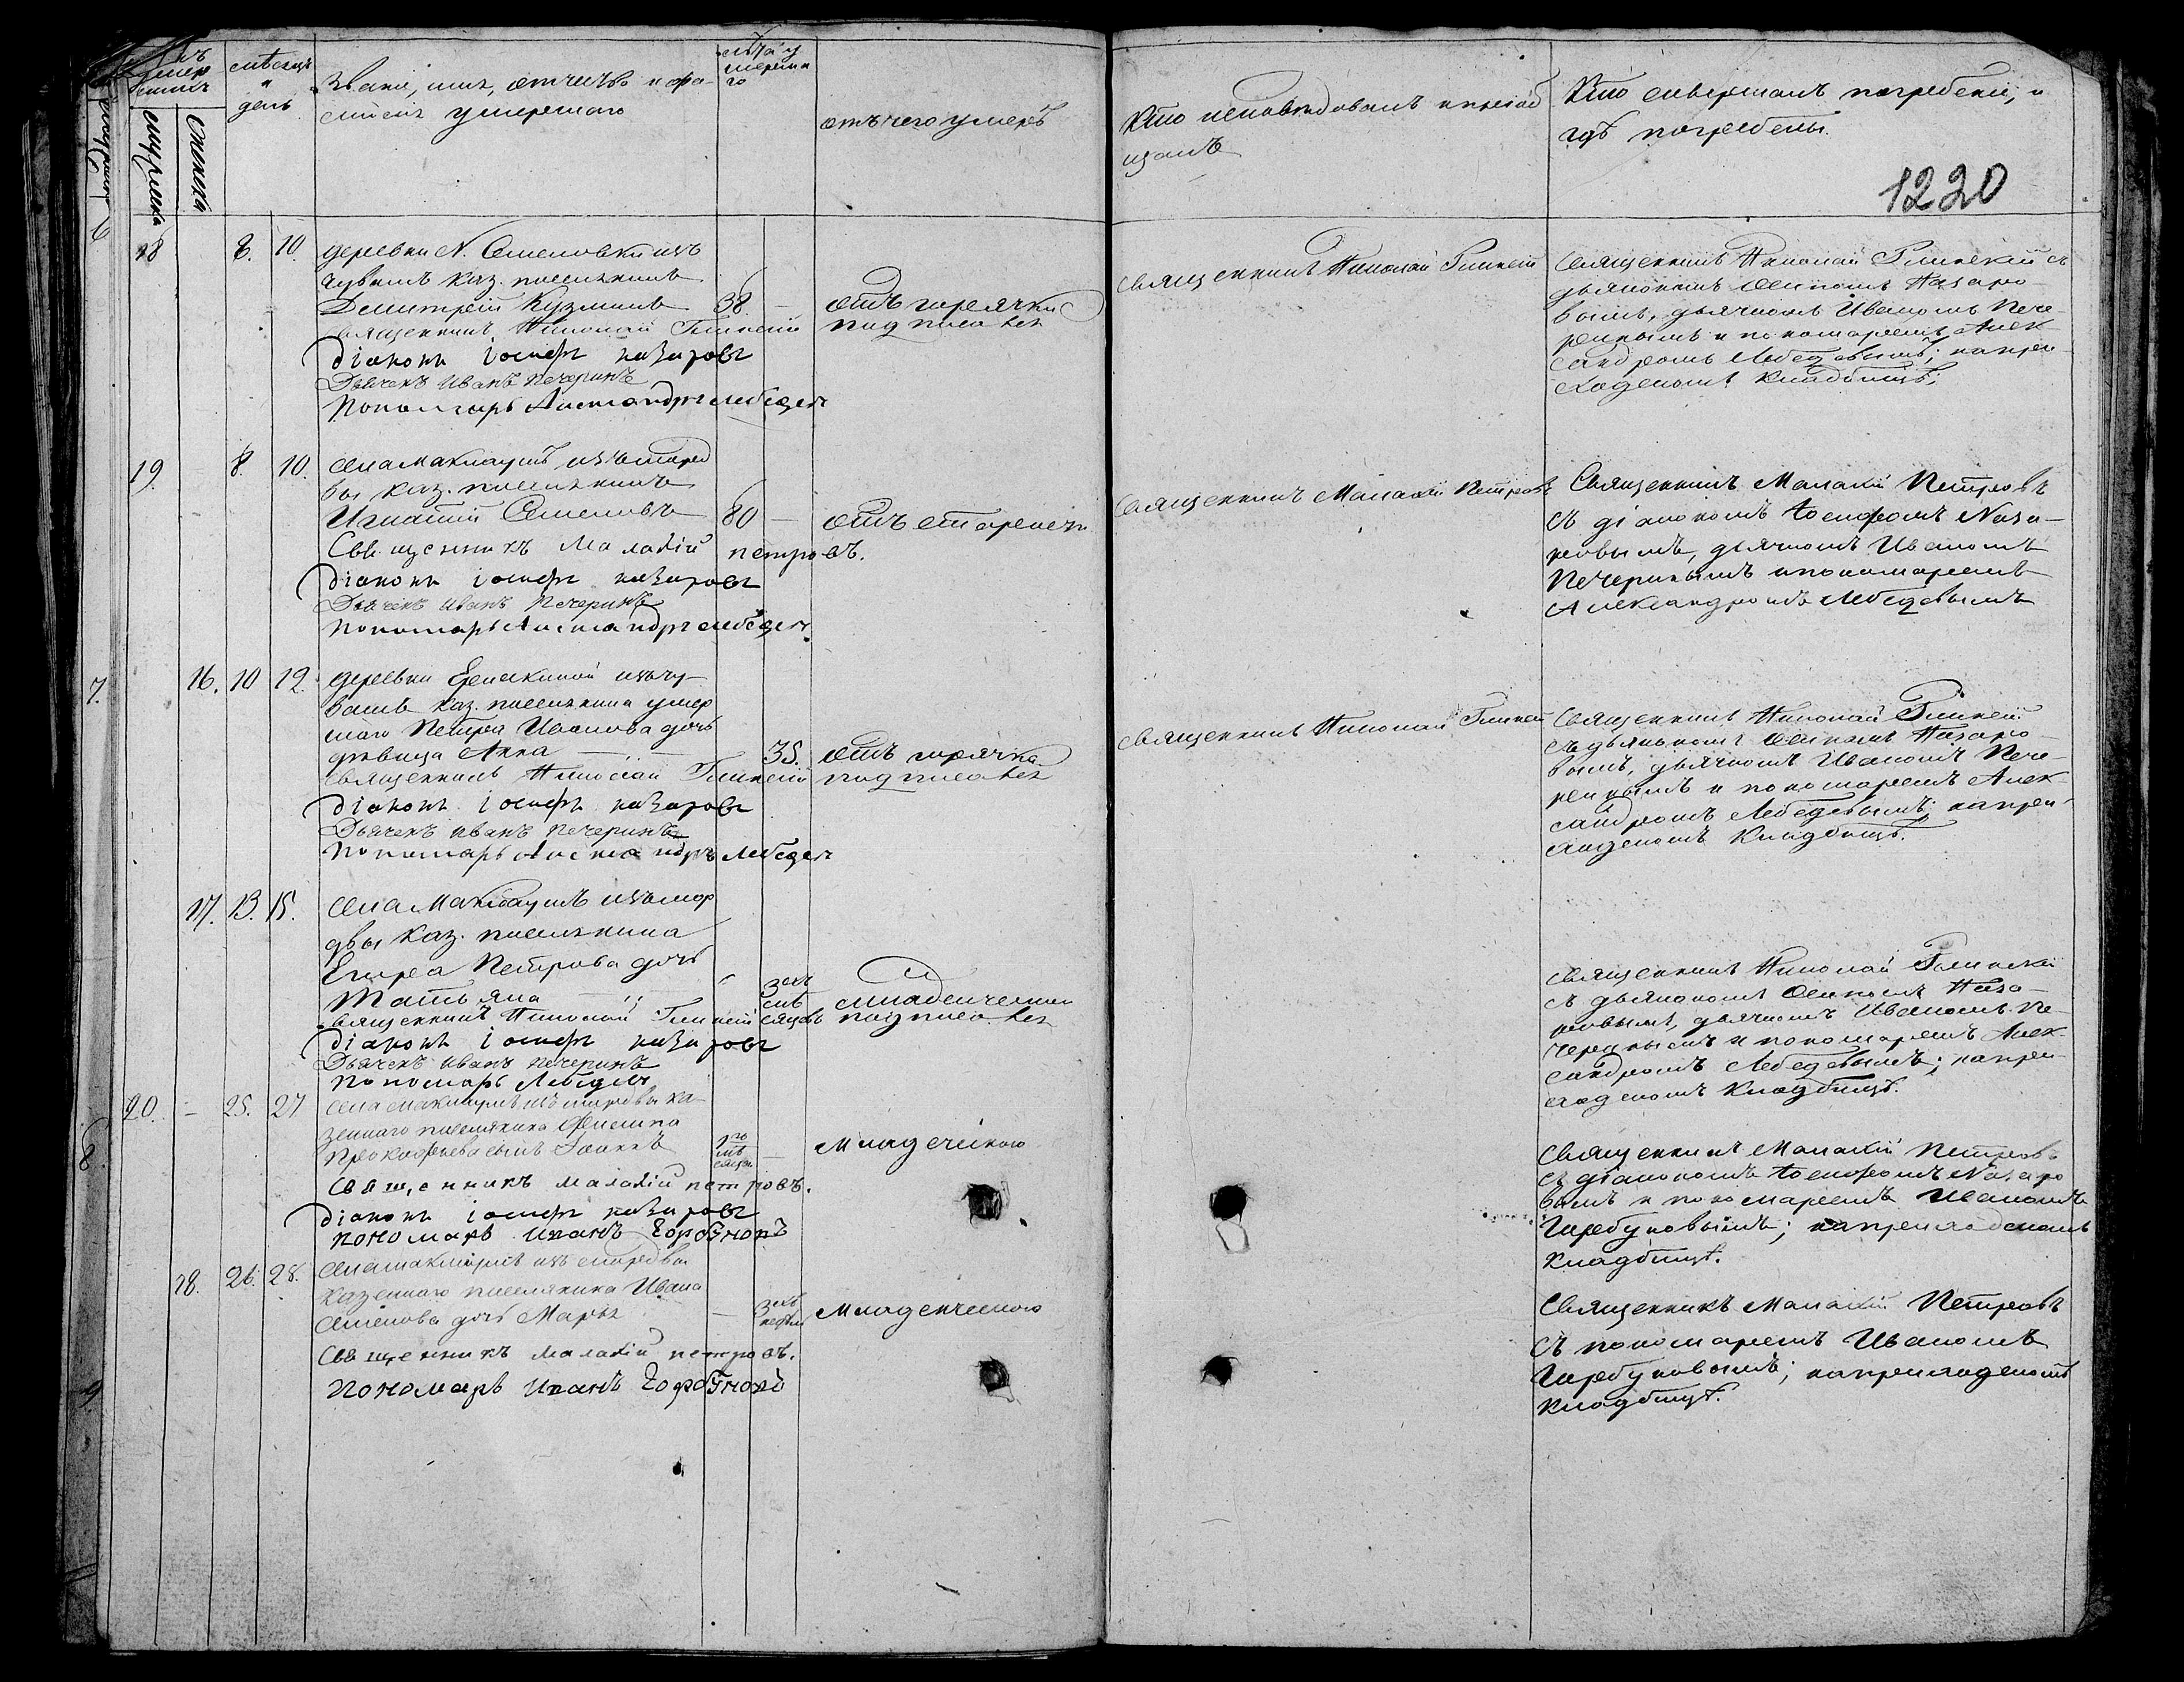 мѣсяцъ
и
день
Званіе, имя, отчество и фа-
милія умершаго
лѣта у
мерша
го
отъ чего умеръ
Кто исповѣдовалъ и пріоб
щалъ
Кто совершалъ погребеніе, и
гдѣ погребены.
1220
мужеска
женска
18 8. 10. деревни N. Семеновки изъ
чувашъ каз. поселянинъ
Димитрій Кузминъ 38. — отъ горячки
священникъ Николай подписался
діаконъ іосифъ назаровъ
Дьячекъ Иванъ Печеринъ
Пономарь Александръ лебедевъ
священникъ Николай
Священникъ Николай съ
дьякономъ Осипомъ Назаро-
вымъ, дьячкомъ Иваномъ Пече-
ринымъ и пономаремъ Алек-
сандромъ Лебедевымъ; на при-
ходскомъ кладбищѣ;
19. 8. 10. села Маклаушъ изъ морд
вы каз. поселянинъ
Игнатій Семеновъ 80 — отъ старости
Священникъ Малахій петровъ.
діаконъ іосифъ назаровъ
Дьячекъ Иванъ Печеринъ
Пономарь Александръ лебедевъ
Священникъ Малахій Петровъ
Священникъ Малахій Петровъ
съ діакономъ Іосифомъ Наза-
ровымъ, дьячкомъ Иваномъ
Печеринымъ и пономаремъ
Александромъ Лебедевымъ
7. 16. 10 12. деревни Ерепкиной изъ чу-
вашъ каз. поселянина умер
шаго Петра Иванова дочь
дѣвица Анна — 35. отъ горячки
священникъ Николай подписался
діаконъ іосифъ назаровъ
Дьячекъ Иванъ Печеринъ
Пономарь Александръ Лебедевъ
священникъ Николай
Священникъ Николай
съ дьякономъ Осипомъ Назаро-
вымъ, дьячкомъ Иваномъ Пече-
ринымъ и пономаремъ Алек
сандромъ Лебедевымъ; на при-
ходскомъ кладбищѣ.
17. 13. 15. села Маклаушъ изъ морд
двы каз. поселянина
Егора Петрова дочь
Татьяна 3ехъ мѣ младенческой
священникъ Николай сяцовъ подписался
діаконъ іосифъ назаровъ
Дьячекъ Иванъ Печеринъ
Пономарь Лебедевъ
священникъ Николай
съ дьякономъ Осипомъ Наза-
ровымъ, дьячкомъ Иваномъ Пе-
черинымъ и пономаремъ Алек-
сандромъ Лебедевымъ; на при-
ходскомъ кладбищѣ.
20. – 25. 27 села Маклаушъ изъ мордвы ка-
зеннаго поселянина Филипа
Прокофьева сынъ Іоаннъ младенческою
8.
Священникъ малахій петровъ.
діаконъ іосифъ назаровъ
пономарь Иванъ Горбуновъ
Священникъ Малахій Петровъ
съ діакономъ Іосифомъ Назаро
вымъ и пономаремъ Иваномъ
Горбуновымъ; на приходскомъ
кладбищѣ.
18. 26. 28. села Маклаушъ изъ мордвы
казеннаго поселянина Ивана
Семенова дочь Марья — 3ехъ недѣль младенческою
Священникъ малахій петровъ.
9
пономарь Иванъ Горбуновъ
Священникъ Малахій Петровъ
съ пономаремъ Иваномъ
Горбуновымъ; на приходскомъ
кладбищѣ.